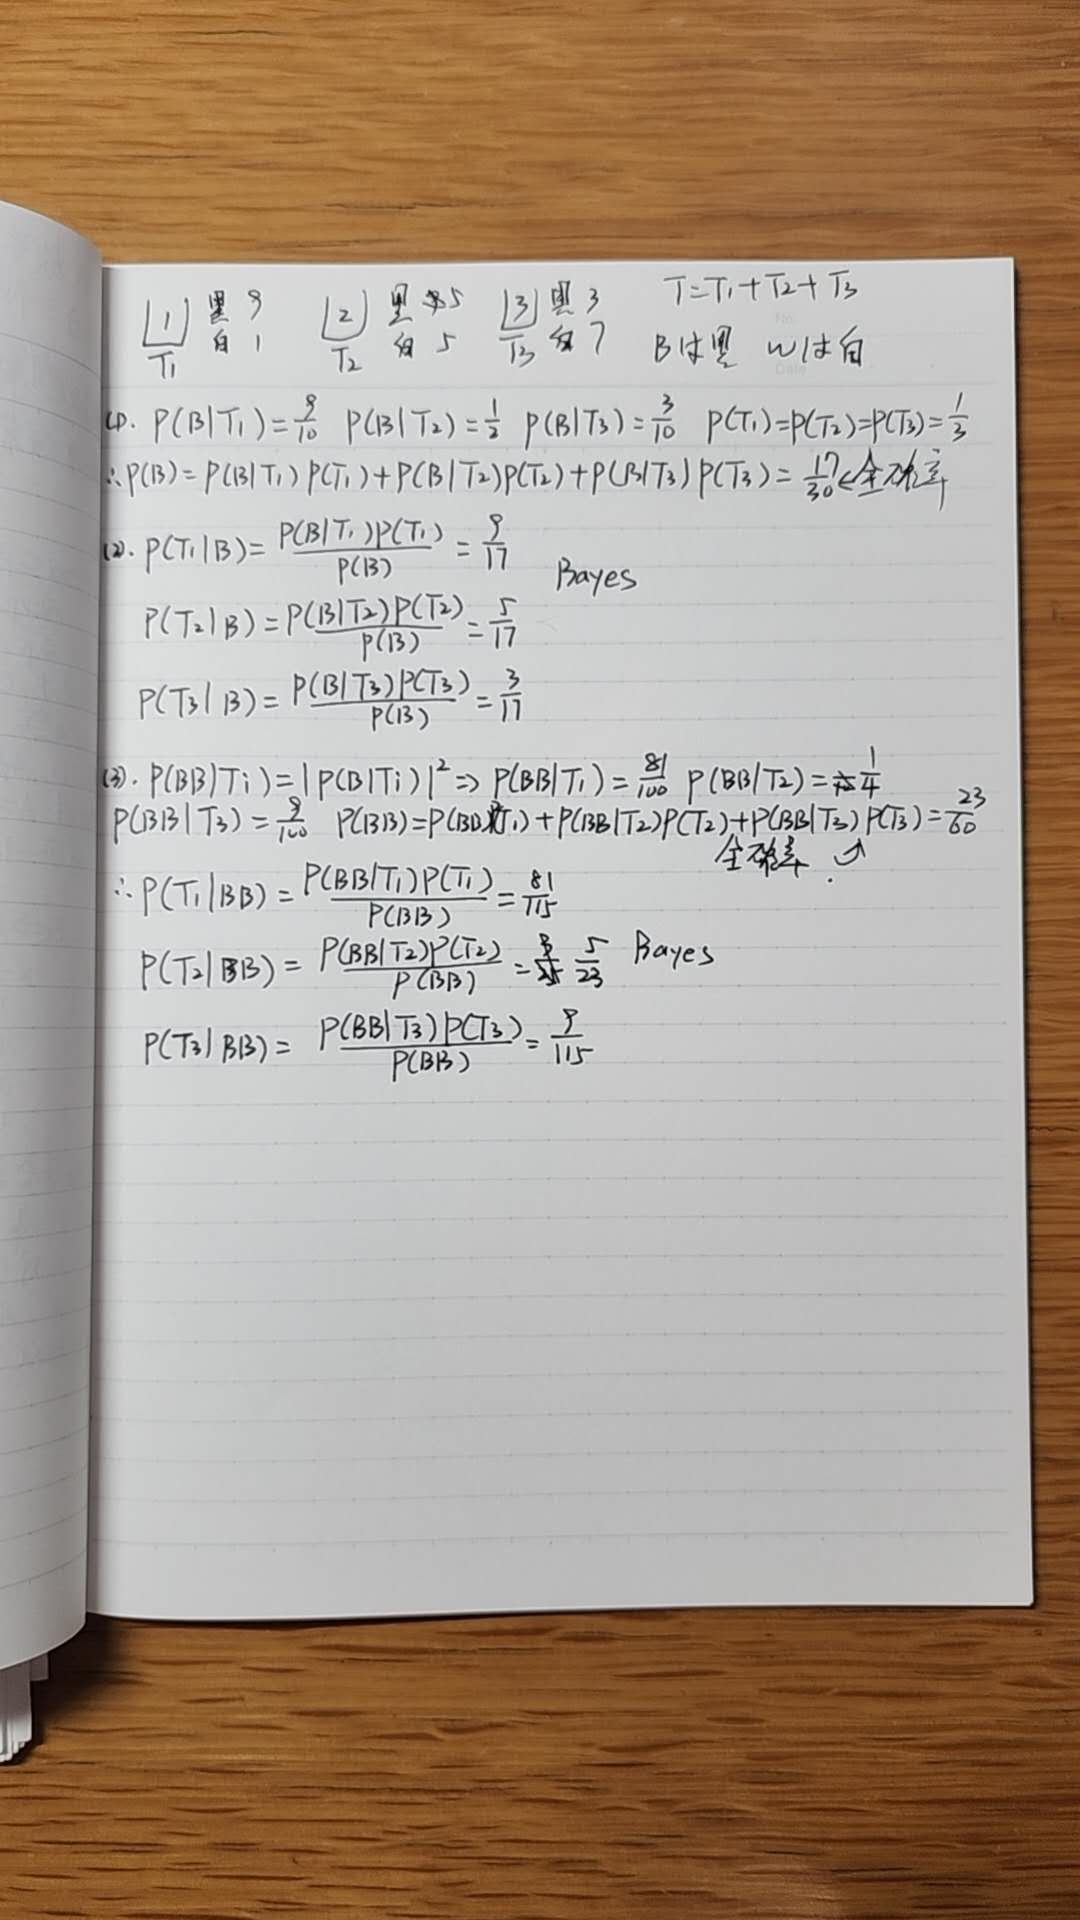 1 黒 9 2 黒 5 3 黒 3 T=T₁+T₂+T₃
T₁ 白 1 T₂ 白 5 T₃ 白 7 Bは黒 Wは白
(1). P(B|T₁)=9/10 P(B|T₂)=1/2 P(B|T₃)=3/10 P(T₁)=P(T₂)=P(T₃)=1/3
∴P(B)=P(B|T₁)P(T₁)+P(B|T₂)P(T₂)+P(B|T₃)P(T₃)=17/30←全确率
(2). P(T₁|B)=P(B|T₁)P(T₁)/P(B)=9/17
Bayes
P(T₂|B)=P(B|T₂)P(T₂)/P(B)=5/17
P(T₃|B)=P(B|T₃)P(T₃)/P(B)=3/17
(3). P(BB|Ti)=|P(B|Ti)|²⇒P(BB|T₁)=81/100 P(BB|T₂)=1/4
P(BB|T₃)=9/100 P(BB)=P(BB T₁)+P(BB|T₂)P(T₂)+P(BB|T₃)P(T₃)=23/60
全确率
∴P(T₁|BB)=P(BB|T₁)P(T₁)/P(BB)=81/115
P(T₂|BB)=P(BB|T₂)P(T₂)/P(BB)=5/23 Bayes
P(T₃|BB)=P(BB|T₃)P(T₃)/P(BB)=9/115
No.
Date